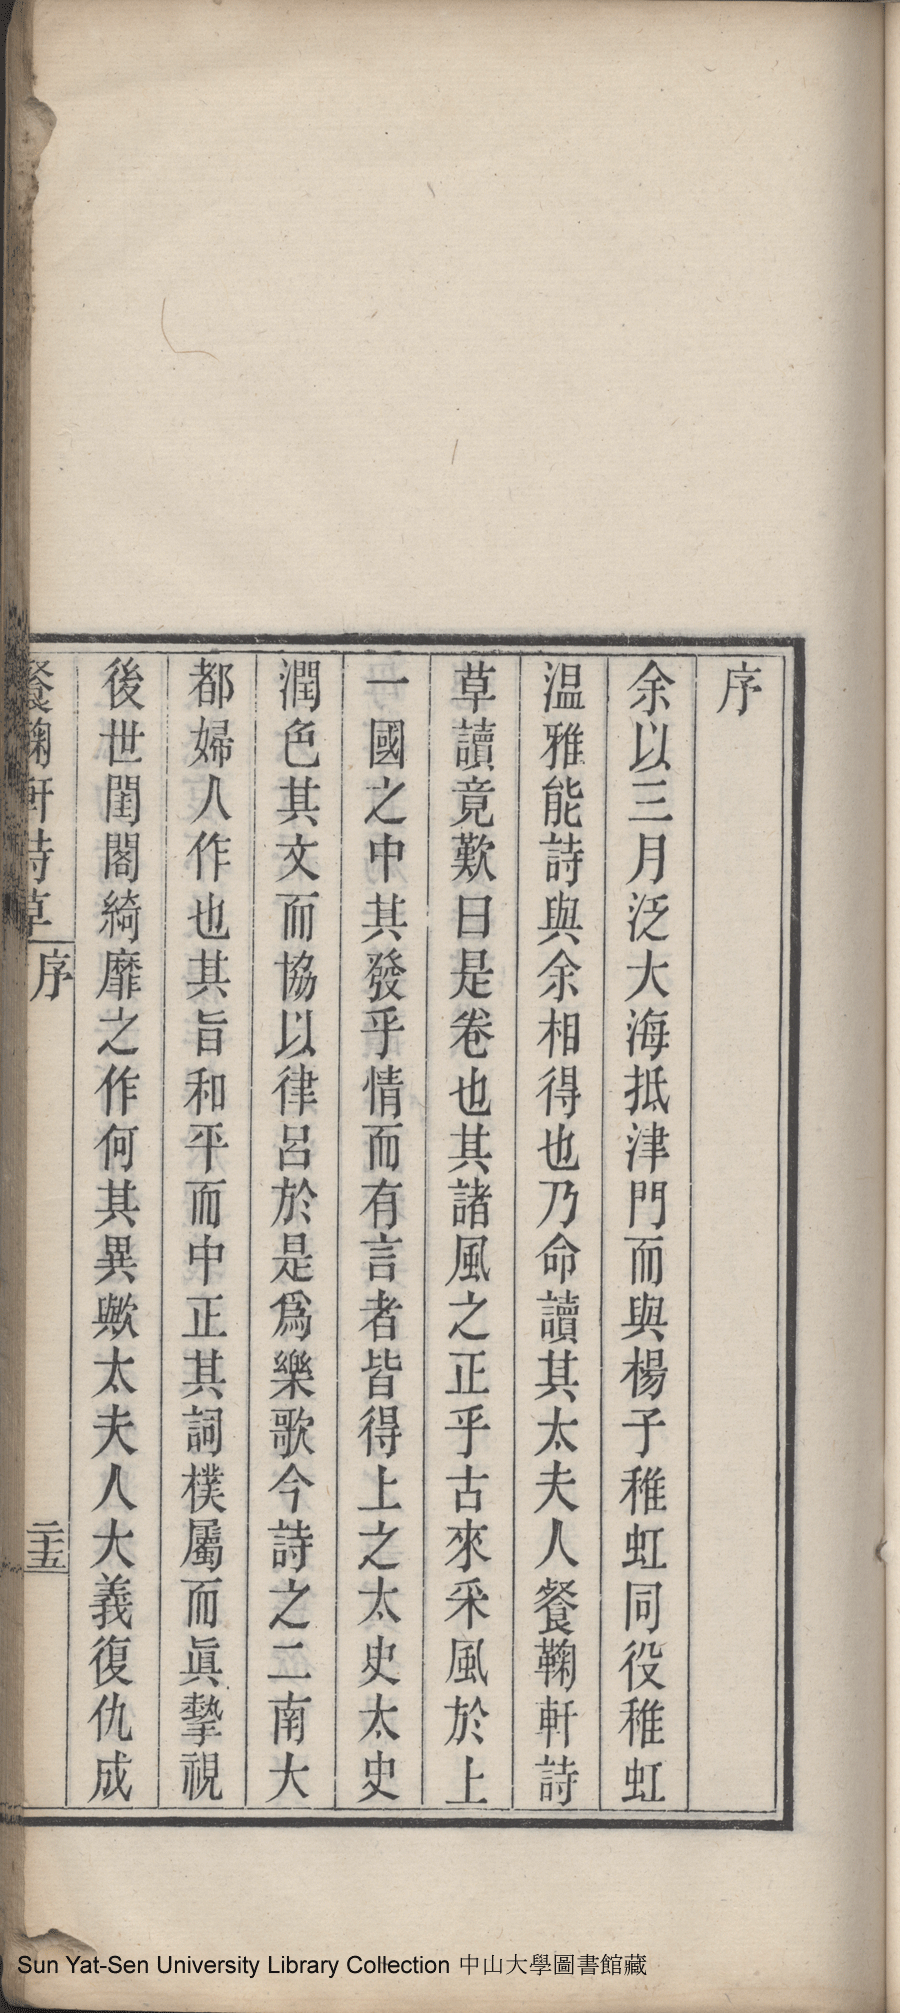 序
余以三月泛大海抵津門而與楊子稚虹同役稚虹
温雅能詩與余相得也乃命讀其太夫人餐鞠軒詩
草讀竟歎曰是卷也其諸風之正乎古來采風於上
一國之中其發乎情而有言者皆得上之太史太史
潤色其文而協以律呂於是爲樂歌今詩之二南大
都婦人作也其旨和平而中正其詞樸屬而眞摯視
後世閨閣綺靡之作何其異歟太夫人大義復仇成
餐鞠軒詩草 序 二十五
Sun Yat-Sen University Library Collection 中山大學圖書館藏